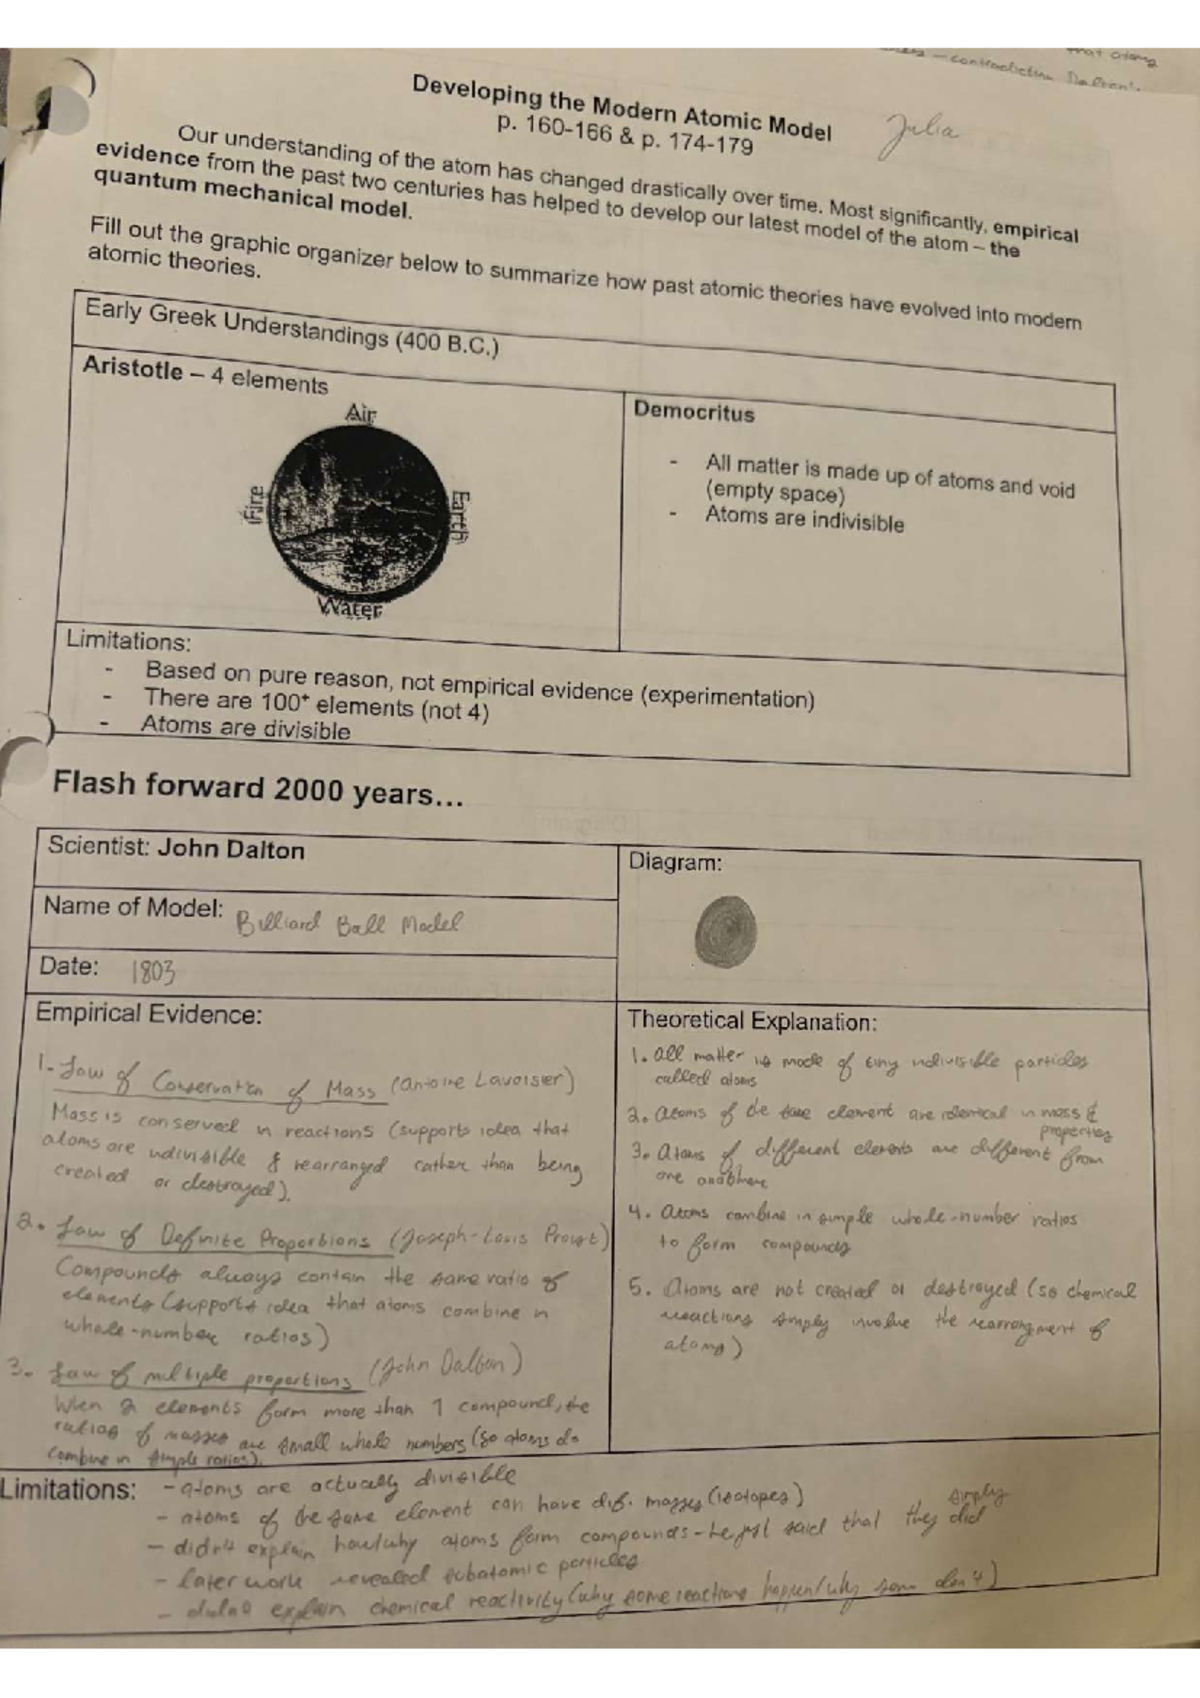 that atoms
– contradicting Dalton's
Developing the Modern Atomic Model
Julia
p. 160-166 & p. 174-179
Our understanding of the atom has changed drastically over time. Most significantly, empirical
evidence from the past two centuries has helped to develop our latest model of the atom – the
quantum mechanical model.
Fill out the graphic organizer below to summarize how past atomic theories have evolved into modern
atomic theories.
Early Greek Understandings (400 B.C.)
Aristotle – 4 elements
Air
Fire
Earth
Water
Democritus
- All matter is made up of atoms and void
(empty space)
- Atoms are indivisible
Limitations:
- Based on pure reason, not empirical evidence (experimentation)
- There are 100+ elements (not 4)
- Atoms are divisible
Flash forward 2000 years...
Scientist: John Dalton
Name of Model: Billiard Ball Model
Date: 1803
Diagram:
Empirical Evidence:
1. Law of Conservation of Mass (Antoine Lavoisier)
Mass is conserved in reactions (supports idea that
atoms are indivisible & rearranged rather than being
created or destroyed).
2. Law of Definite Proportions (Joseph-Louis Proust)
Compounds always contain the same ratio of
elements (supports idea that atoms combine in
whole-number ratios)
3. Law of multiple proportions (John Dalton)
When 2 elements form more than 1 compound, the
ratios of masses are small whole numbers (so atoms do
combine in simple ratios).
Theoretical Explanation:
1. all matter is made of tiny indivisible particles
called atoms
2. atoms of the same element are identical in mass &
properties
3. atoms of different elements are different from
one another
4. atoms combine in simple whole-number ratios
to form compounds
5. atoms are not created or destroyed (so chemical
reactions simply involve the rearrangment of
atoms)
Limitations: - atoms are actually divisible
- atoms of the same element can have dif. masses (isotopes)
- didn't explain how/why atoms form compounds - he just said that they simply did
- later work revealed subatomic particles
- didn't explain chemical reactivity (why some reactions happen/why some don't)